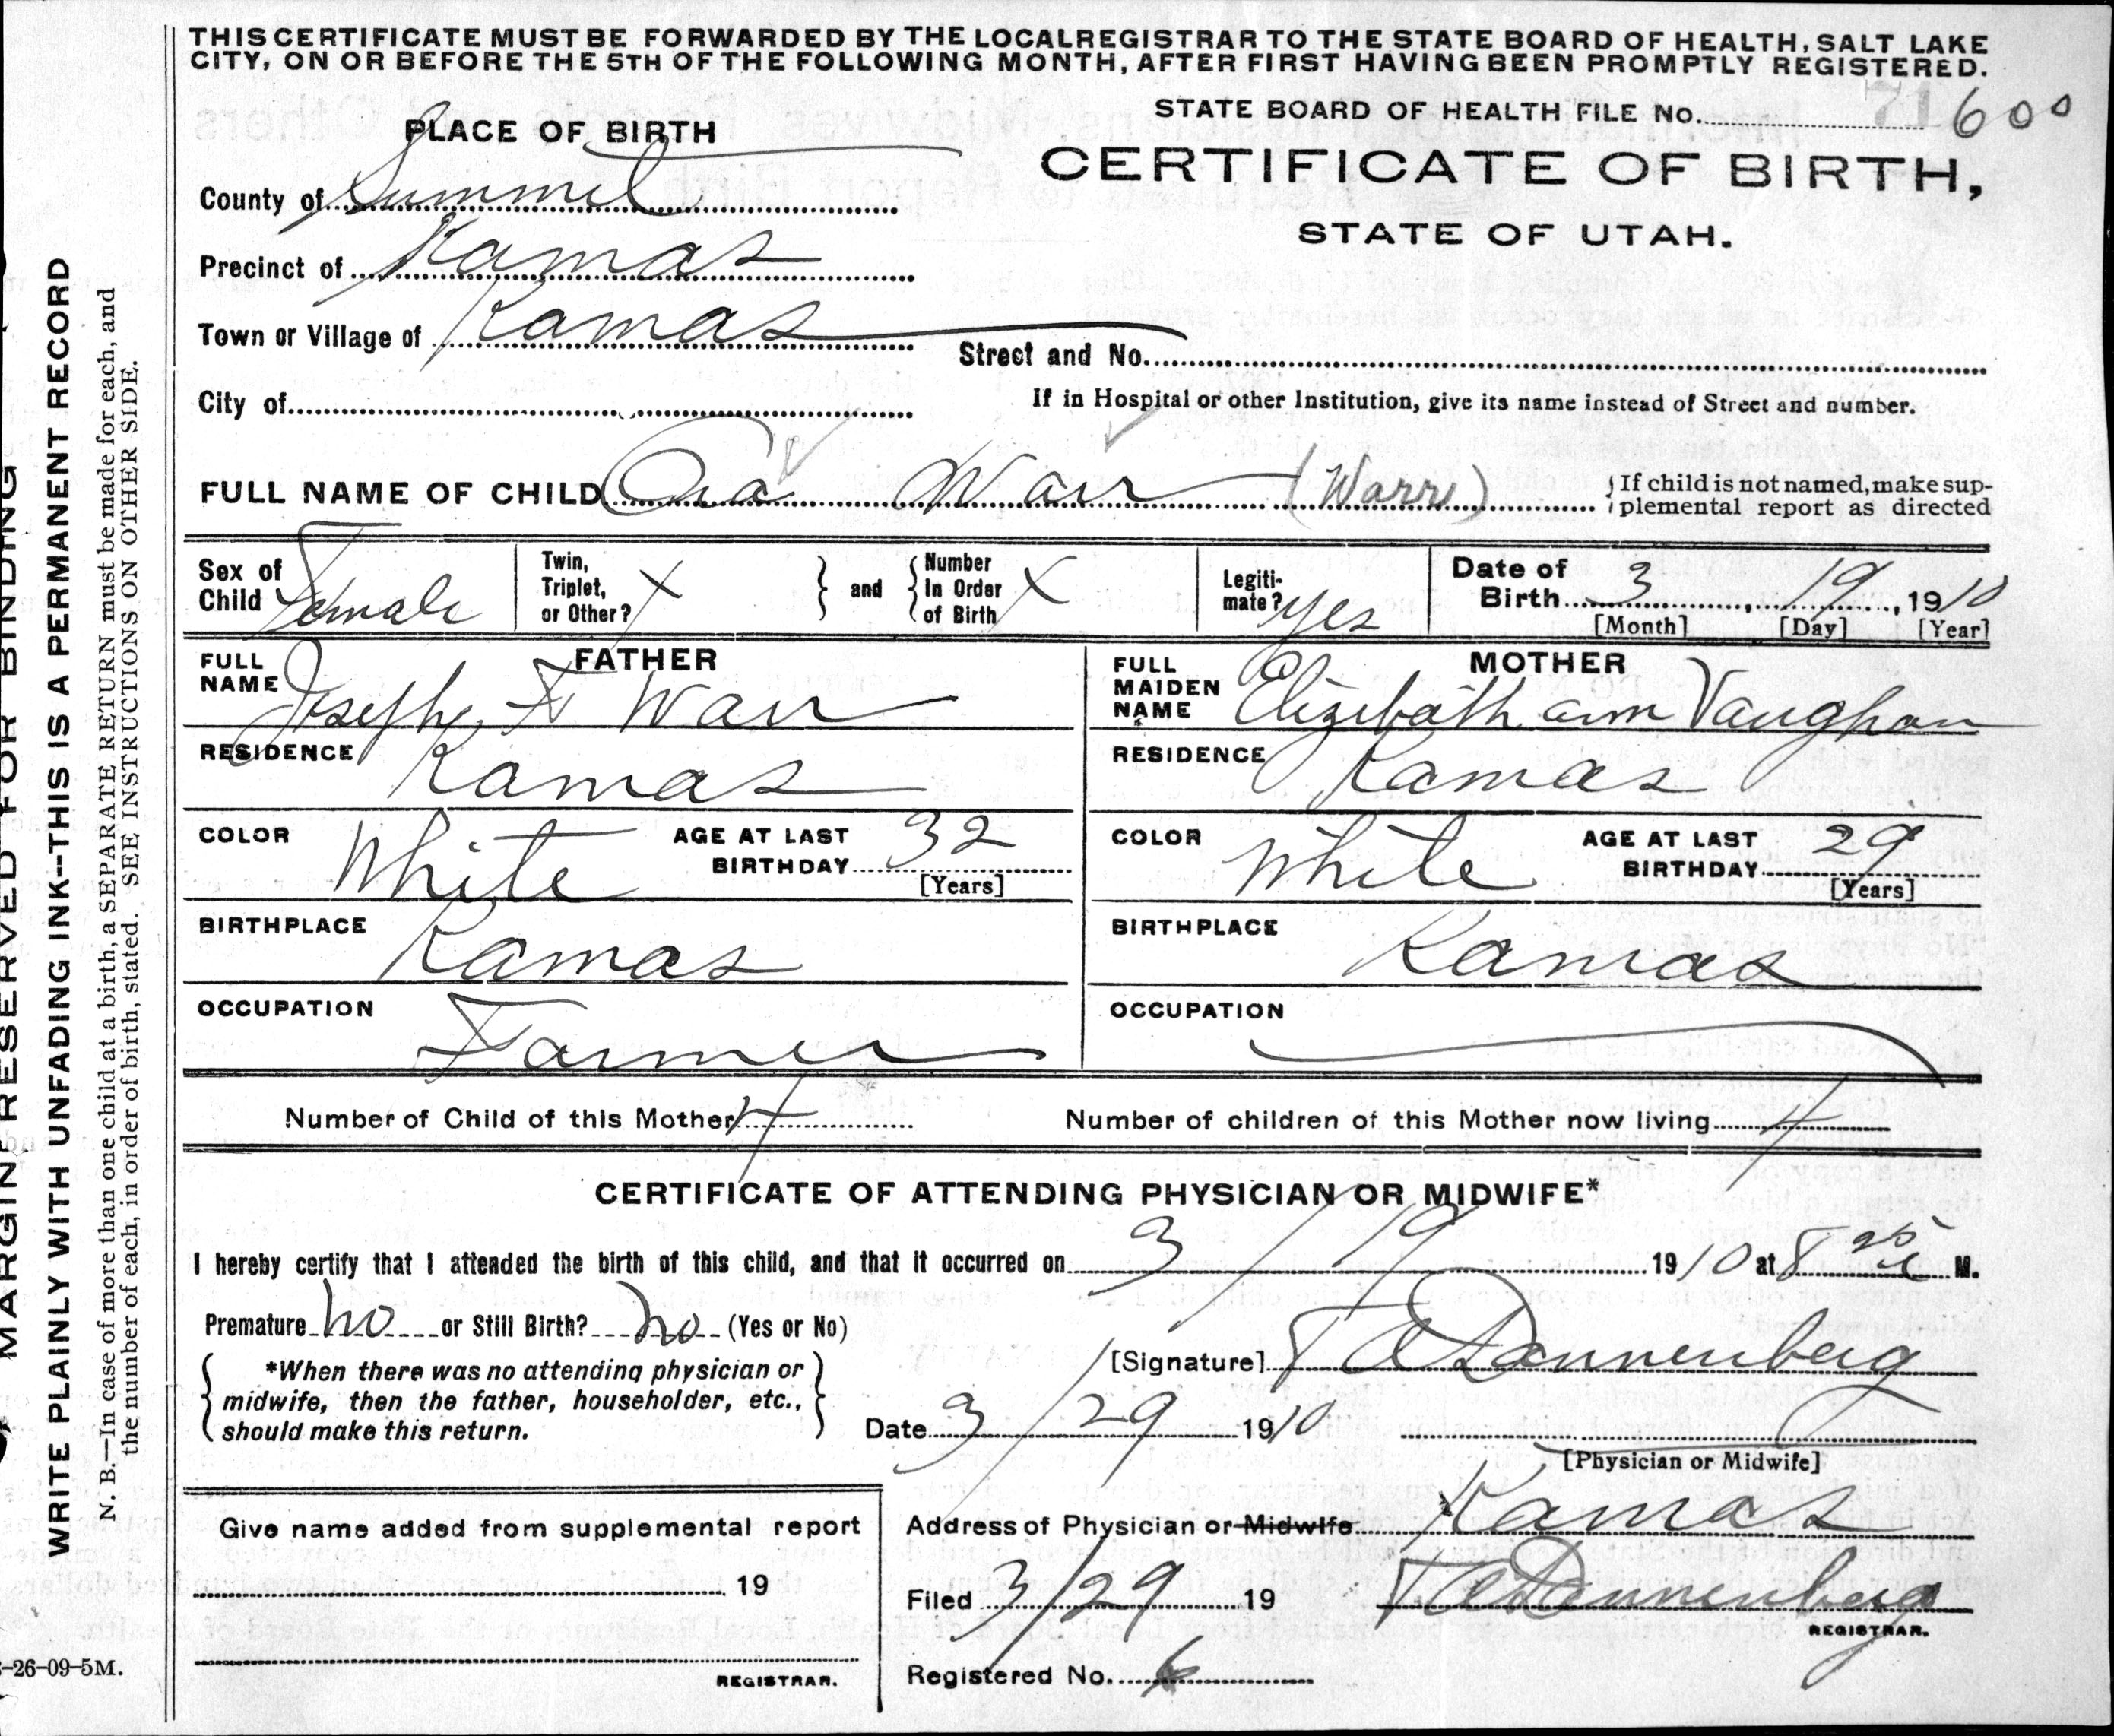 THIS CERTIFICATE MUST BE FORWARDED BY THE LOCAL REGISTRAR TO THE STATE BOARD OF HEALTH, SALT LAKE
CITY, ON OR BEFORE THE 5TH OF THE FOLLOWING MONTH, AFTER FIRST HAVING BEEN PROMPTLY REGISTERED.
STATE BOARD OF HEALTH FILE No. 600
PLACE OF BIRTH
CERTIFICATE OF BIRTH,
STATE OF UTAH.
County of Summit
Precinct of Kamas
Town or Village of Kamas
Street and No.
City of
If in Hospital or other Institution, give its name instead of Street and number.
FULL NAME OF CHILD Warr (Warr)
If child is not named, make sup-
plemental report as directed
Sex of Child Female
Twin, Triplet, or Other? X
and
Number In Order of Birth X
Legiti-mate? yes
Date of Birth 3, 19, 1910
[Month] [Day] [Year]
FATHER
FULL NAME Joseph F Warr
RESIDENCE Kamas
COLOR White
AGE AT LAST BIRTHDAY 32
[Years]
BIRTHPLACE Kamas
OCCUPATION Farmer
MOTHER
FULL MAIDEN NAME Elizibath ann Vaughan
RESIDENCE Kamas
COLOR White
AGE AT LAST BIRTHDAY 29
[Years]
BIRTHPLACE Kamas
OCCUPATION
Number of Child of this Mother 4
Number of children of this Mother now living 4
CERTIFICATE OF ATTENDING PHYSICIAN OR MIDWIFE*
I hereby certify that I attended the birth of this child, and that it occurred on 3/19 1910 at 8 M.
Premature no or Still Birth? no (Yes or No)
*When there was no attending physician or
midwife, then the father, householder, etc.,
should make this return.
[Signature] T A Dannenberg
Date 3/29 1910
[Physician or Midwife]
Give name added from supplemental report
19
REGISTRAR.
Address of Physician or Midwife Kamas
Filed 3/29 19 T A Dannenberg
REGISTRAR.
Registered No. 6
MARGIN RESERVED FOR BINDING
WRITE PLAINLY WITH UNFADING INK--THIS IS A PERMANENT RECORD
N. B.—In case of more than one child at a birth, a SEPARATE RETURN must be made for each, and
the number of each, in order of birth, stated. SEE INSTRUCTIONS ON OTHER SIDE.
-26-09-5M.